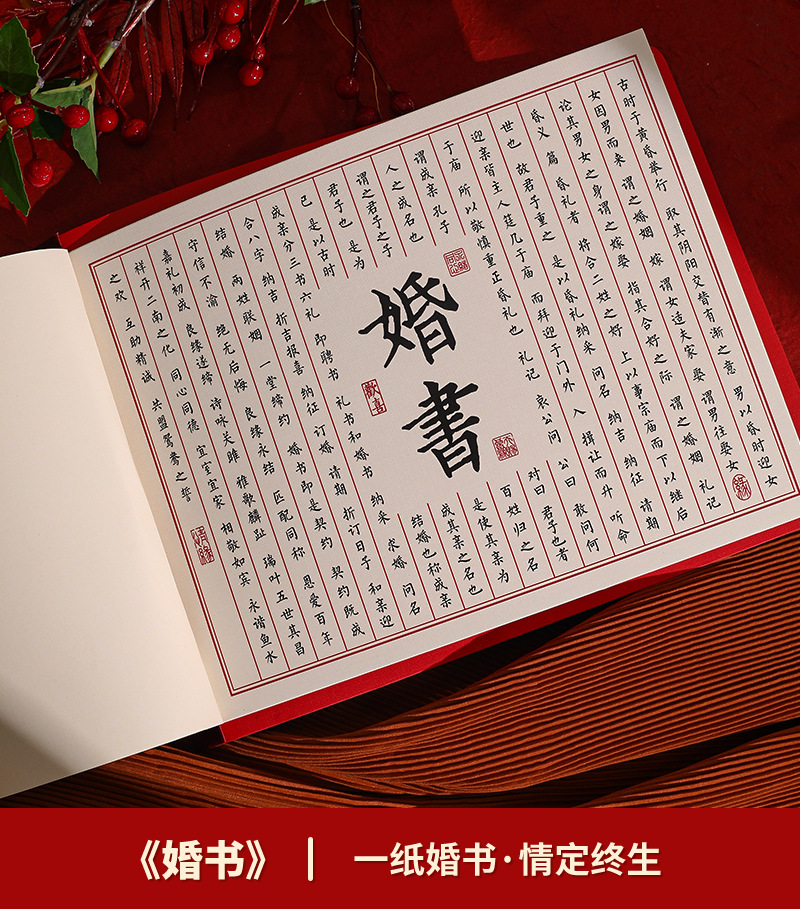 古时于黄昏举行 取其阴阳交替有渐之意 男以昏时迎女
女因男而来 谓之婚姻 嫁 谓女适夫家 娶 谓男往娶女
论其男女之身谓之嫁娶 指其合好之际 谓之婚姻 礼记
昏义 篇 昏礼者 将合二姓之好 上以事宗庙而下以继后
世也 故君子重之 是以昏礼纳采 问名 纳吉 纳征 请期
迎亲皆主人筵几于庙 而拜迎于门外 入 揖让而升 听命
于庙 所以敬慎重正昏礼也 礼记 哀公问 公曰 敢问何
谓成亲 孔子 对曰 君子也者
人之成名也 百姓归之名
谓之君子之子 是使其亲为
君子也 是为 成其亲之名也
己 是以古时 结婚也称成亲
婚書
歡喜
成亲分三书六礼 即聘书 礼书和婚书 纳采 求婚 问名
合八字 纳吉 折吉报喜 纳征 订婚 请期 折订日子 和亲迎
结婚 两姓联姻 一堂缔约 婚书即是契约 契约既成
守信不渝 绝无后悔 良缘永结 匹配同称 恩爱百年
嘉礼初成 良缘遂缔 诗咏关雎 雅歌麟趾 瑞叶五世其昌
祥开二南之化 同心同德 宜室宜家 相敬如宾 永谐鱼水
之欢 互助精诚 共盟鸳鸯之誓
《婚书》 | 一纸婚书·情定终生